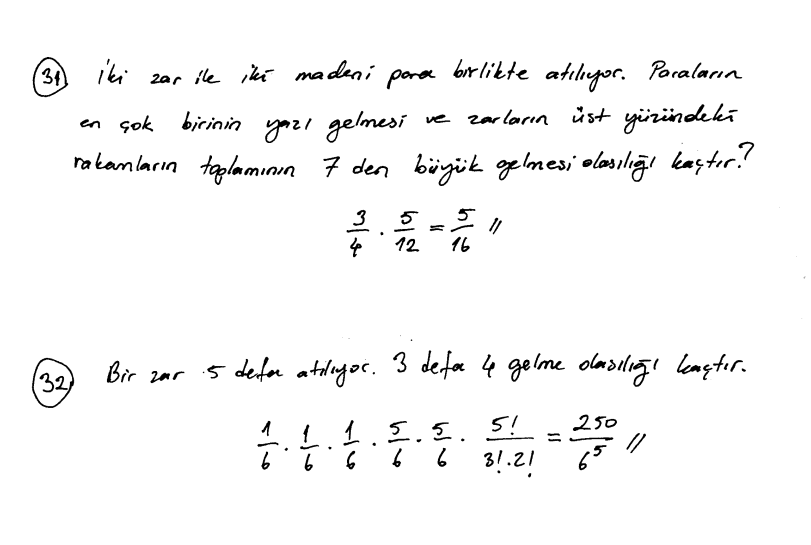 31 İki zar ile iki madeni para birlikte atılıyor. Paraların
en çok birinin yazı gelmesi ve zarların üst yüzündeki
rakamların toplamının 7 den büyük gelmesi olasılığı kaçtır?
3/4 . 5/12 = 5/16 //
32 Bir zar 5 defa atılıyor. 3 defa 4 gelme olasılığı kaçtır.
1/6 . 1/6 . 1/6 . 5/6 . 5/6 . 5!/3!.2! = 250/6⁵ //